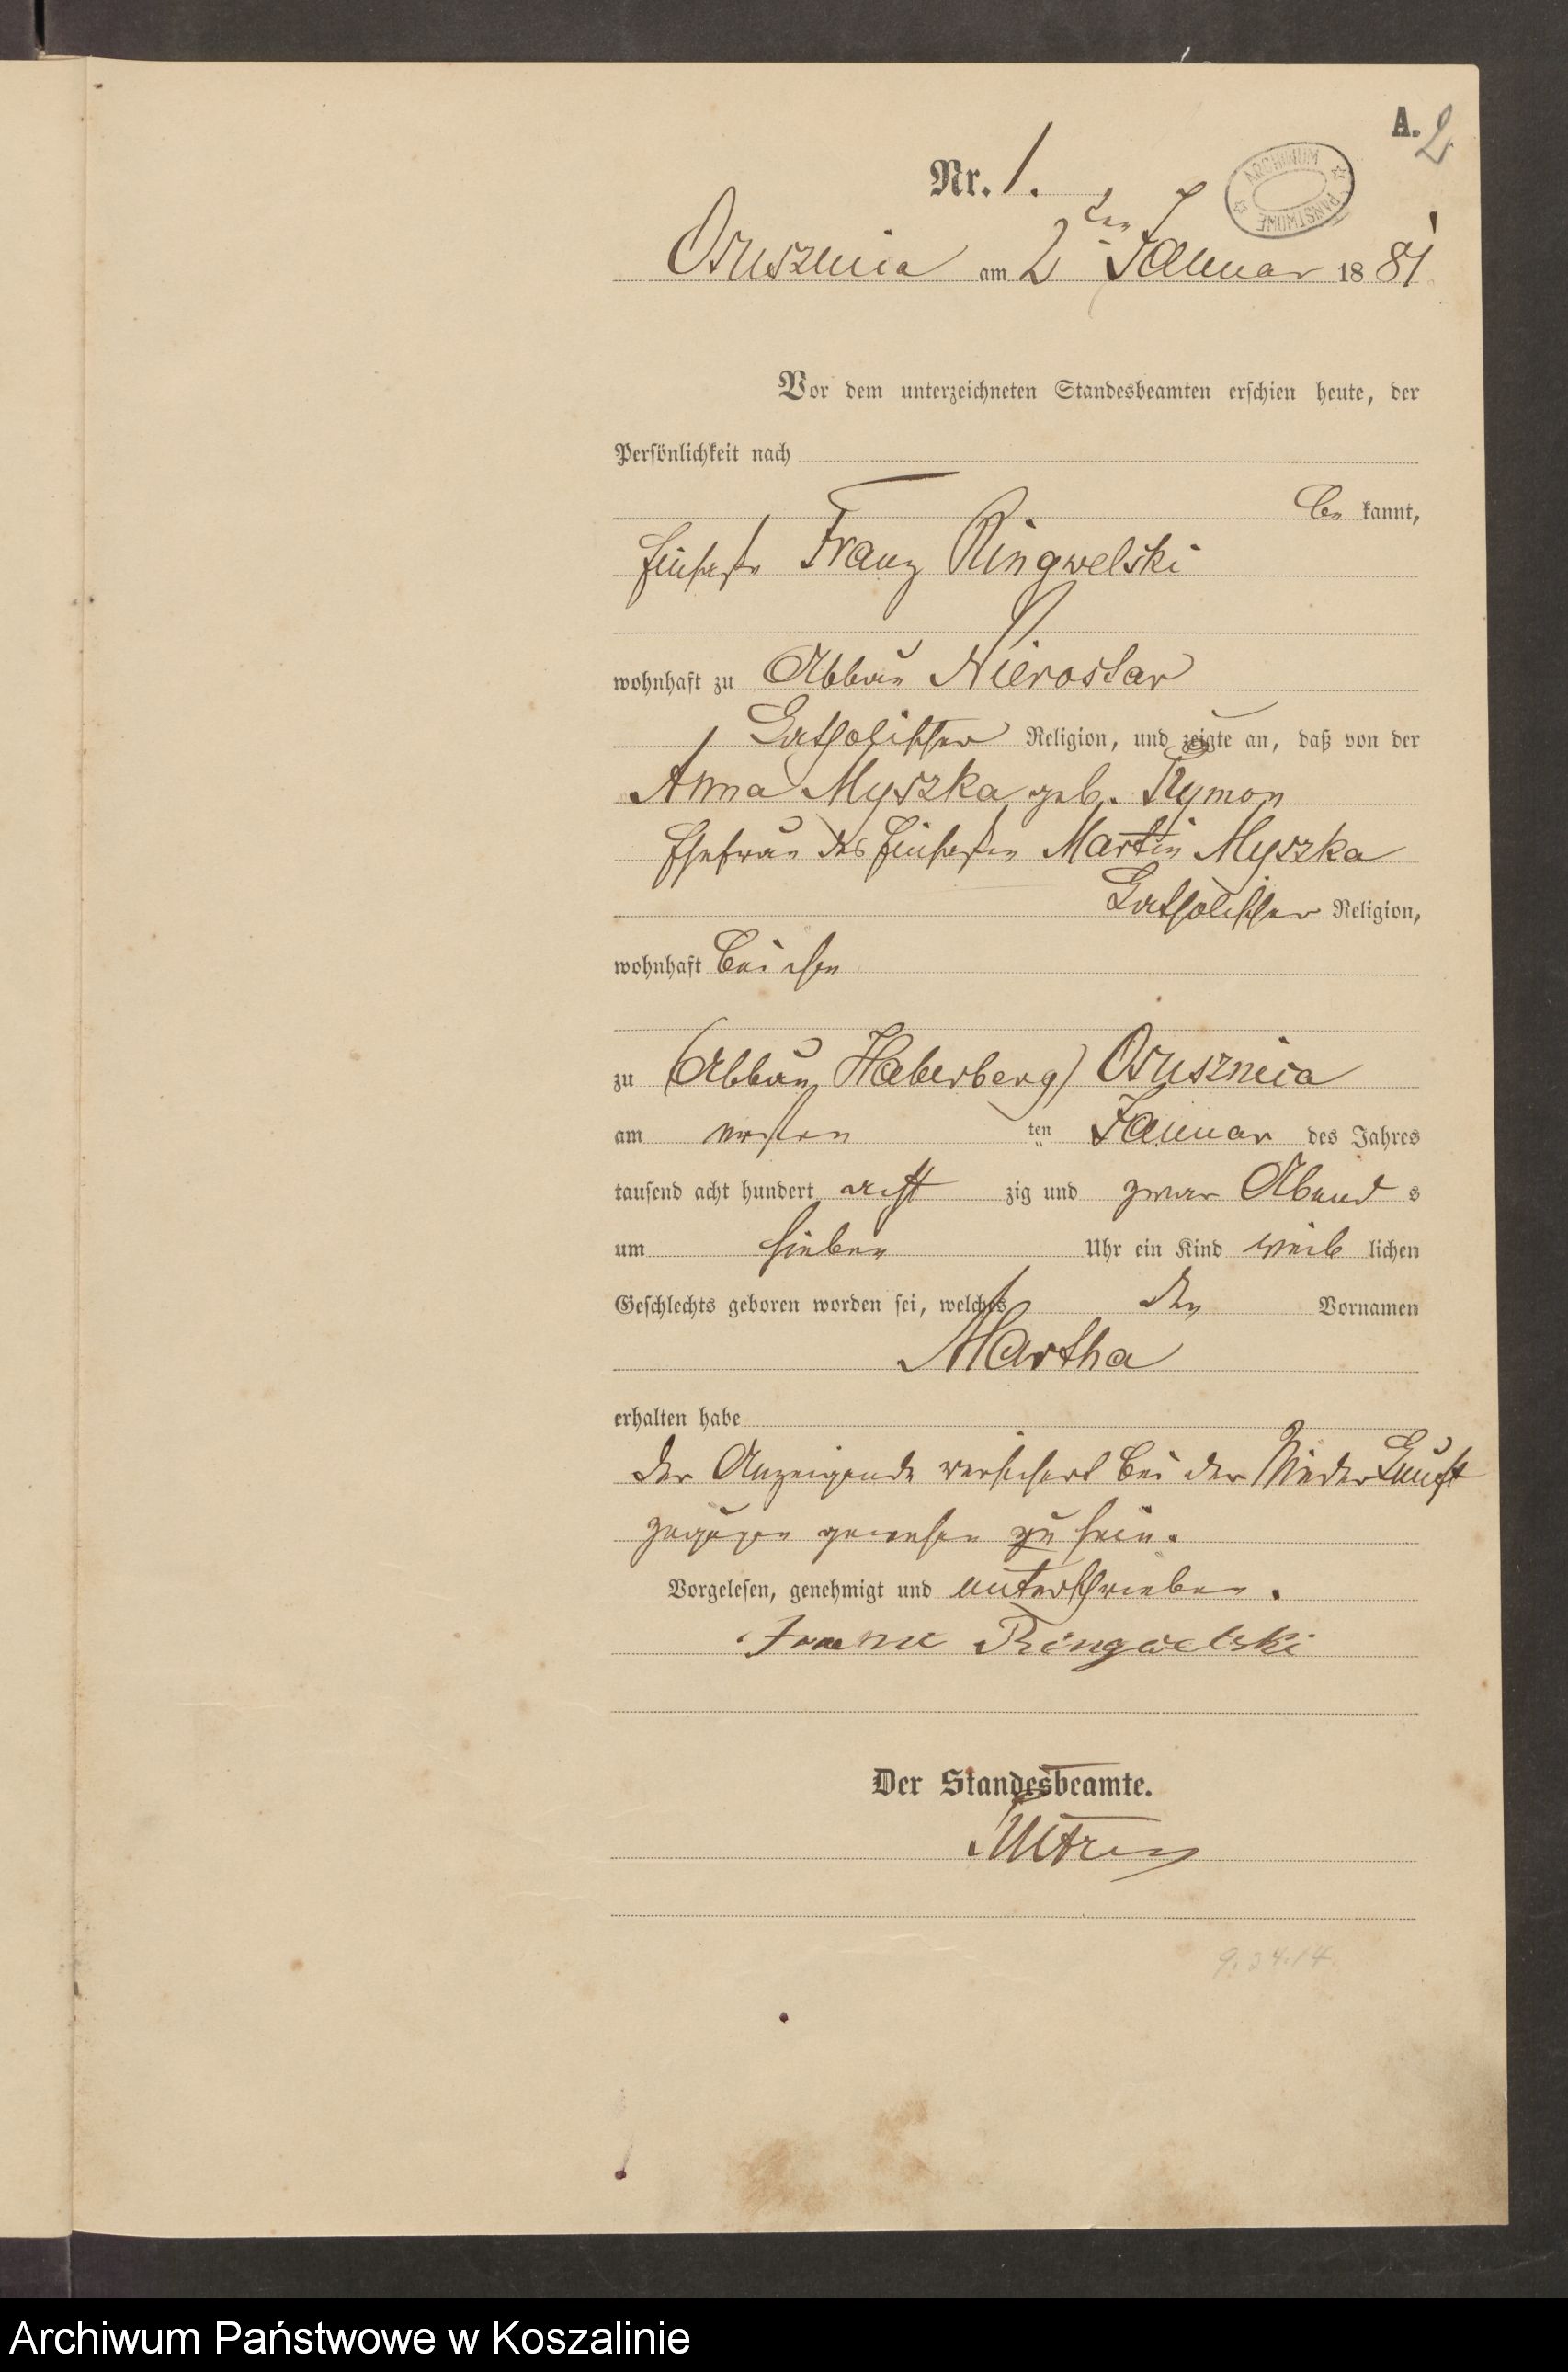 A. 2
Nr. 1.
ARCHIWUM PAŃSTWOWE
Osusznica am 2ten Januar 1881
Vor dem unterzeichneten Standesbeamten erschien heute, der
Persönlichkeit nach
be kannt,
Franz Ringwelski
wohnhaft zu Abbau Nierostar
Catholischer Religion, und zeigte an, daß von der
Anna Myszka geb. Rymon
Ehefrau des Martin Myszka
Catholischer Religion,
wohnhaft bei ihm
zu (Abbau Haberberg) Osusznica
am ersten ten Januar des Jahres
tausend acht hundert acht zig und zwar Abend s
um sieben Uhr ein Kind weib lichen
Geschlechts geboren worden sei, welches den Vornamen
Martha
erhalten habe
der Anzeigende versichert bei der Niederkunft
zugegen gewesen zu sein.
Vorgelesen, genehmigt und unterschrieben.
Ringwelski
Der Standesbeamte.
Archiwum Państwowe w Koszalinie